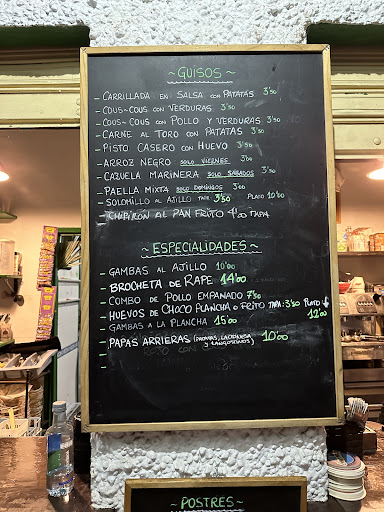 ~ GUISOS ~
- CARRILLADA EN SALSA CON PATATAS 3'50
- COUS-COUS CON VERDURAS 3'50
- COUS-COUS CON POLLO Y VERDURAS 3'50
- CARNE AL TORO CON PATATAS 3'50
- PISTO CASERO CON HUEVO 3'50
- ARROZ NEGRO SOLO VIERNES 3'00
- CAZUELA MARINERA SOLO SABADOS 3'50
- PAELLA MIXTA SOLO DOMINGOS 3'00
- SOLOMILLO AL AJILLO TAPA 3'50 PLATO 10'00
- CHIPIRÓN AL PAN FRITO 4'00 TAPA
~ ESPECIALIDADES ~
- GAMBAS AL AJILLO 10'00
- BROCHETA DE RAPE 14'00
- COMBO DE POLLO EMPANADO 7'50
- HUEVOS DE CHOCO PLANCHA O FRITO TAPA: 3'50 PLATO
12'00
- GAMBAS A LA PLANCHA 15'00
- PAPAS ARRIERAS 10'00
Y LANGOSTINOS)
~ POSTRES ~